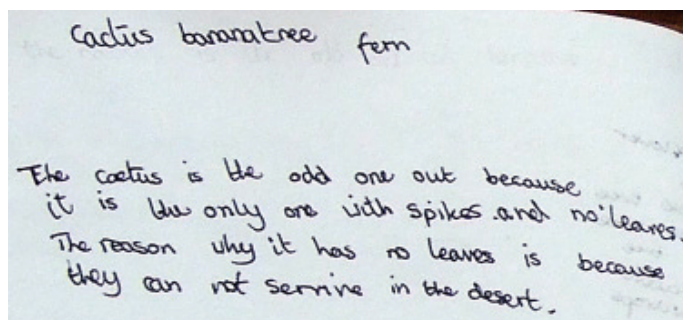 Cactus bananatree fern
The cactus is the odd one out because
it is the only one with spikes and no leaves.
The reason why it has no leaves is because
they can not servive in the desert.